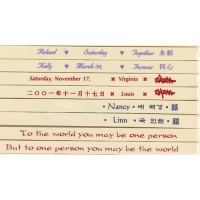 Richard ♥ Saturday ♥ Together 永願
Kelly ♥ March 30, ♥ Forever 同心
Saturday, November 17, × Virginia ×
二○○一年十一月十七日 × Louis ×
• Nancy • 배 혜경 • 囍
• Linn • 국 인원 • 囍
To the world you may be one person
But to one person you may be the world